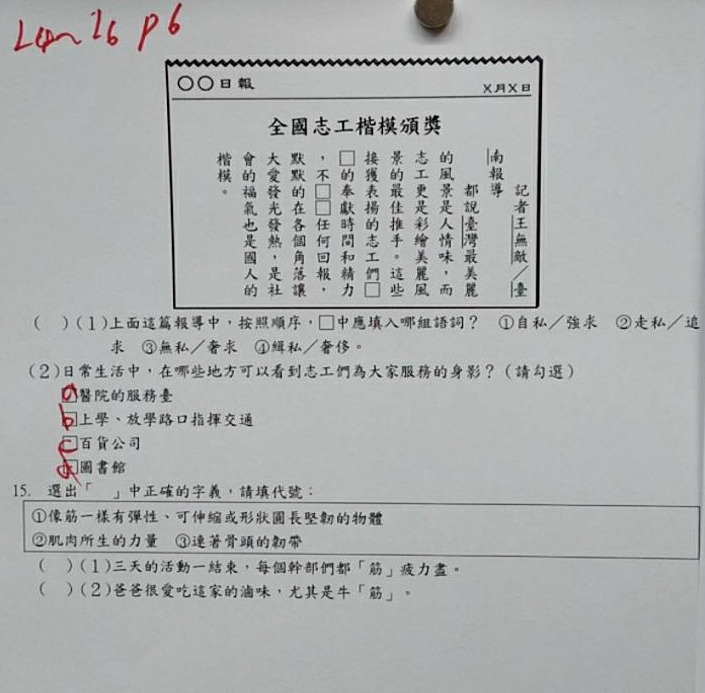 Len 26 P6
○○日報
X月X日
全國志工楷模頒獎
記者王無敵／臺
南報導
都說臺灣最美麗
的風景是人情味，而
志工更是彩繪美麗風
景的最佳推手。這些
接獲表揚的志工們□
□的奉獻時間和精力
，不□□任何回報，
默默的在各個角落讓
大愛發光發熱，是社
會的福氣也是國人的
楷模。
（　）（1）上面這篇報導中，按照順序，□中應填入哪組語詞？　①自私／強求　②走私／追
求　③無私／奢求　④緝私／奢侈。
（2）日常生活中，在哪些地方可以看到志工們為大家服務的身影？（請勾選）
a□醫院的服務臺
b□上學、放學路口指揮交通
c□百貨公司
d□圖書館
15.　選出「　」中正確的字義，請填代號：
①像筋一樣有彈性、可伸縮或形狀圓長堅韌的物體
②肌肉所生的力量　③連著骨頭的韌帶
（　）（1）三天的活動一結束，每個幹部們都「筋」疲力盡。
（　）（2）爸爸很愛吃這家的滷味，尤其是牛「筋」。